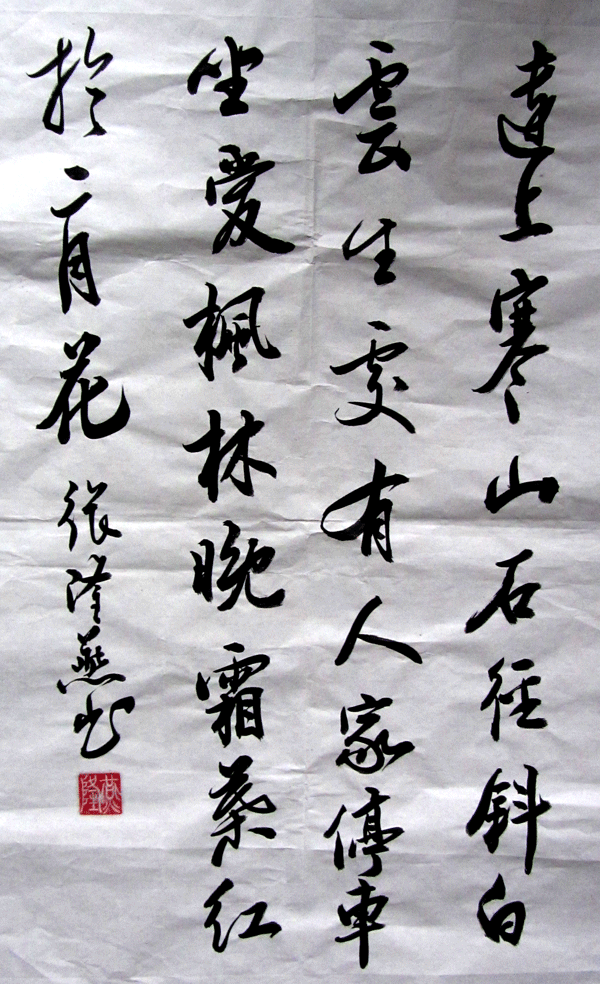 遠上寒山石徑斜白
雲生處有人家停車
坐愛楓林晚霜葉紅
於二月花 張隆燕书
隆燕